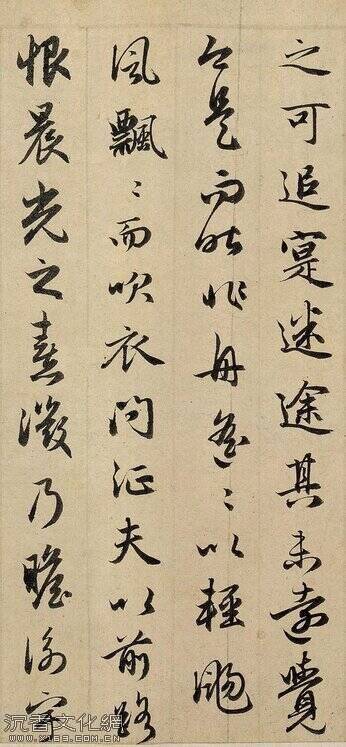 之可追寔迷途其未遠覺
今是而昨非舟遥〻以輕颺
風飄〻而吹衣問征夫以前路
恨晨光之熹微乃瞻衡宇
沉香文化網